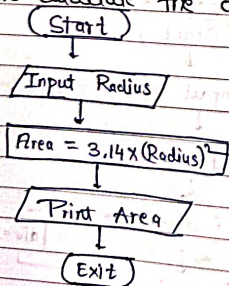 The
Start
Input Radius
Area = 3.14 x (Radius)²
Print Area
Exit